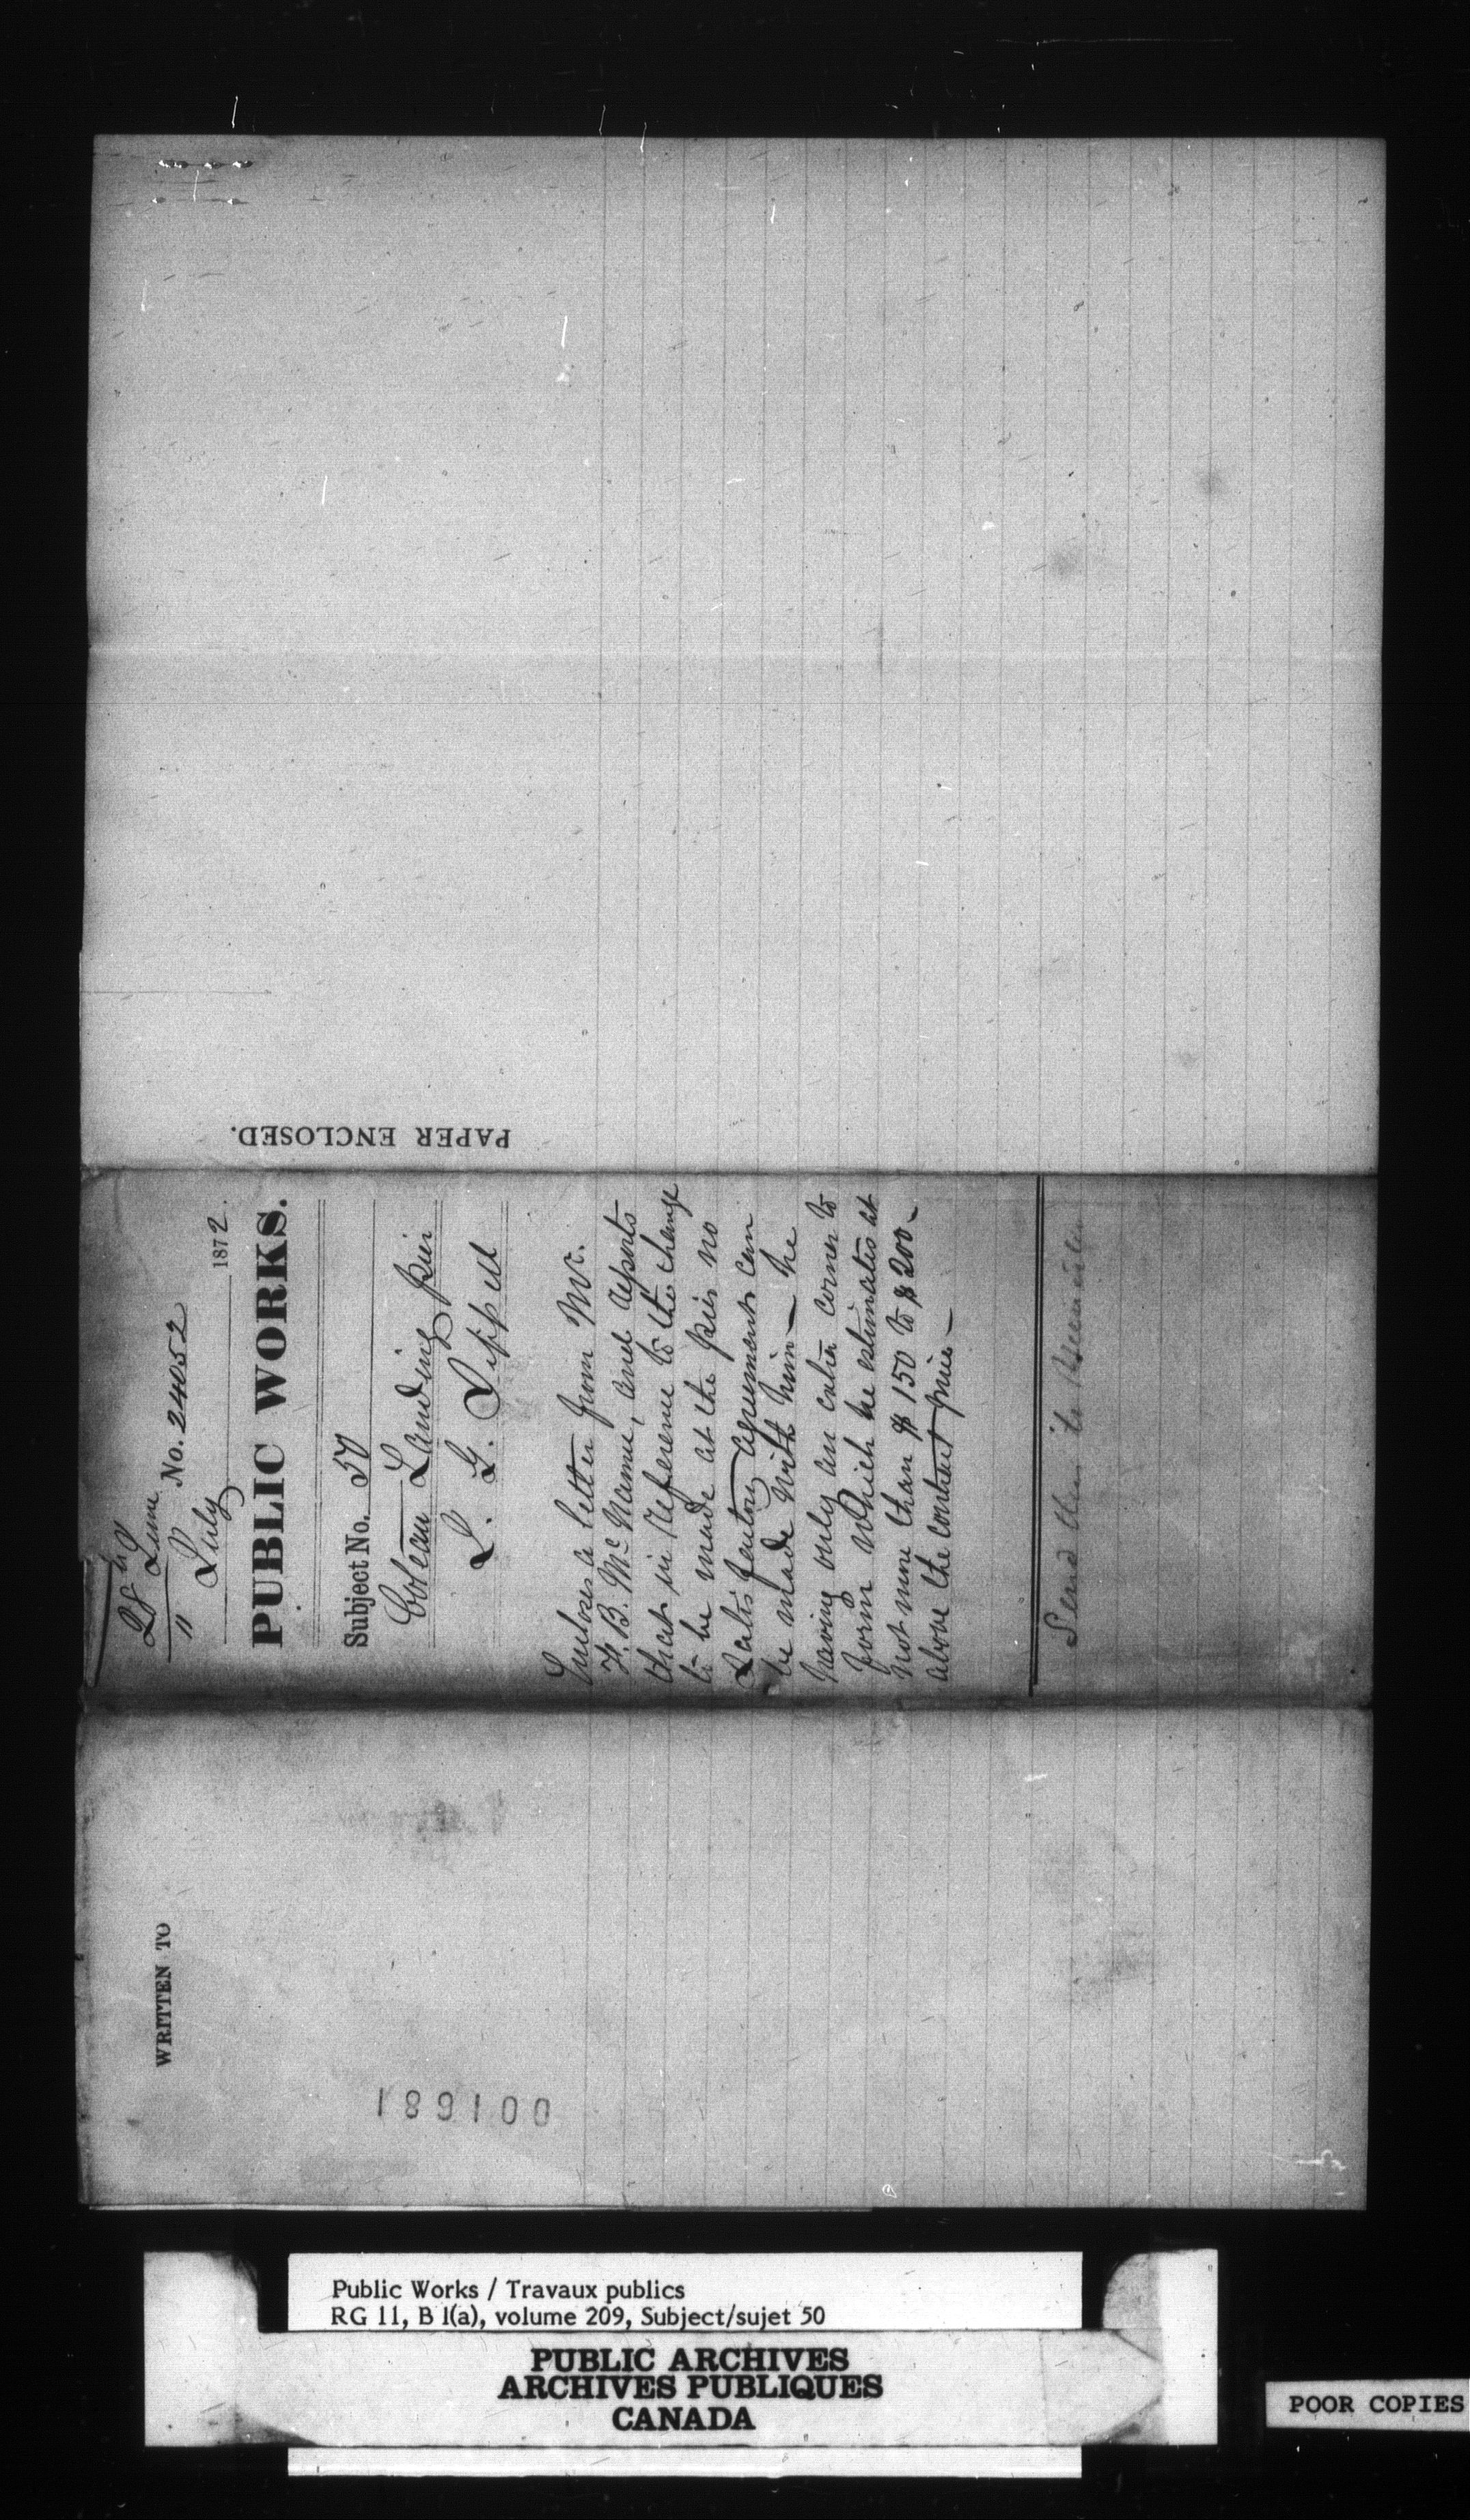 28 June
11 July No. 24052
1872.
PUBLIC WORKS.
Subject No. 50
Coteau Landing pier
L. G. Dippell
Encloses a letter from Mr.
F. B. McNamee, and reports
that in reference to the change
to be made at the pier no
satisfactory agreement can
be made with him — he
having only an extra corner to
form which he estimates at
not more than $150 to $200 —
above the contract price —
Send this to
PAPER ENCLOSED.
WRITTEN TO
001681
Public Works / Travaux publics
RG 11, B 1(a), volume 209, Subject/sujet 50
PUBLIC ARCHIVES
ARCHIVES PUBLIQUES
CANADA
POOR COPIES